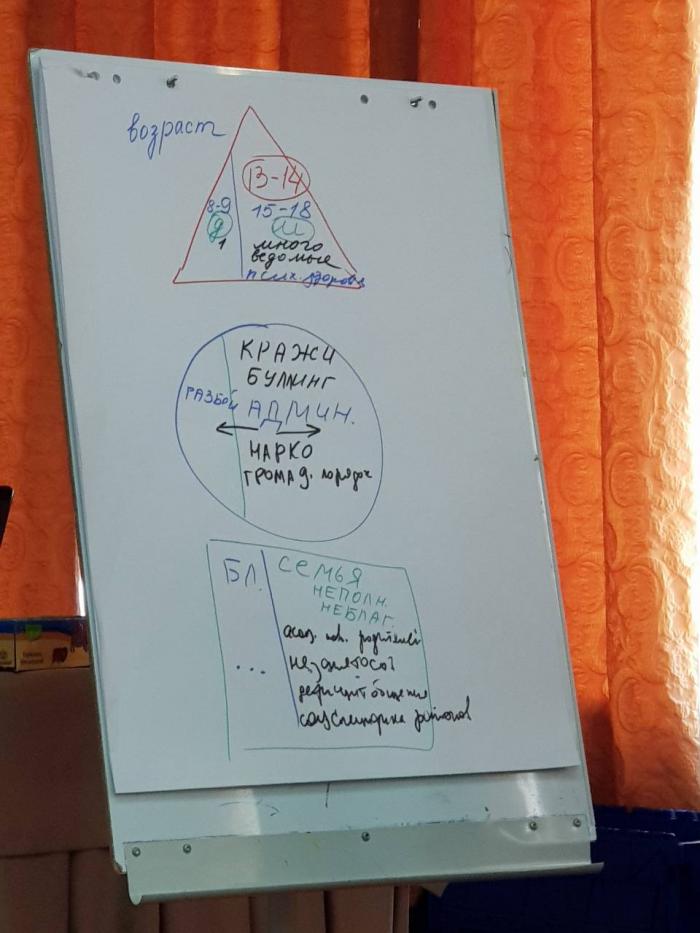 возраст
13-14
8-9
15-18
д
м
1
много
ведомые
псих. здоровье
КРАЖИ
БУЛЛИНГ
РАЗБОЙ
АДМИН.
НАРКО
ГРОМАД. порядок
БЛ.
СЕМЬЯ
НЕПОЛН.
НЕБЛАГ.
асоц. пов. родителей
...
незанятость
дефицит общения
соц специфика районов